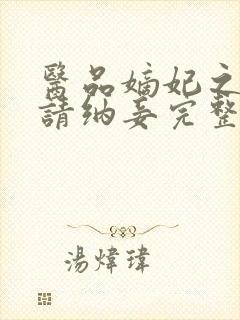 醫品嫡妃之
請納妾完整
湯煒瑋